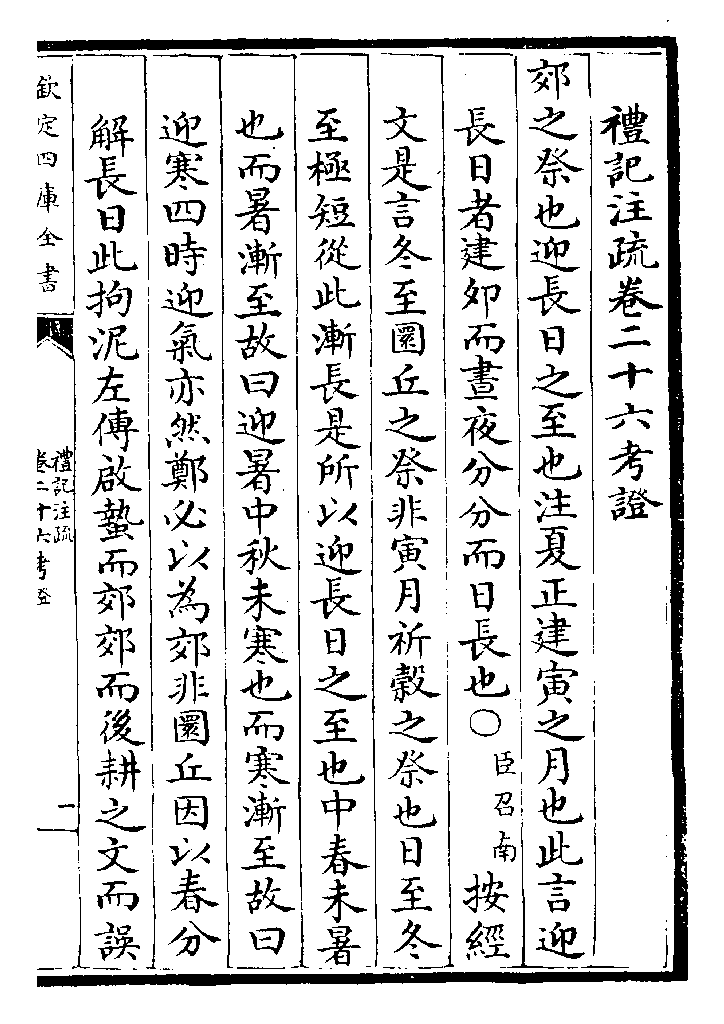 禮記注疏卷二十六考證
郊之祭也迎長日之至也注夏正建寅之月也此言迎
長日者建夘而晝夜分分而日長也○臣召南按經
文是言冬至圜丘之祭非寅月祈穀之祭也日至冬
至極短從此漸長是所以迎長日之至也中春未暑
也而暑漸至故曰迎暑中秋未寒也而寒漸至故曰
迎寒四時迎氣亦然鄭必以為郊非圜丘因以春分
解長日此拘泥左傳啟蟄而郊郊而後耕之文而誤
欽定四庫全書
禮記注疏
卷二十六考證
二